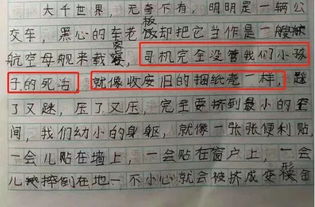 大千世界，无奇不有，明明是一辆公
交车，黑心的车老板却把它当作是一艘
航空母舰来载客，司机完全没管我们小孩
子的死活，就像收废旧的捆纸壳一样，
了又，压了又压，完全要挤到最小的空
间，我们幼小的身躯，就像一张张便利贴
一会儿贴在墙上，一会贴在窗户上，一会
儿摔倒在地一不小心就会被挤成变形金